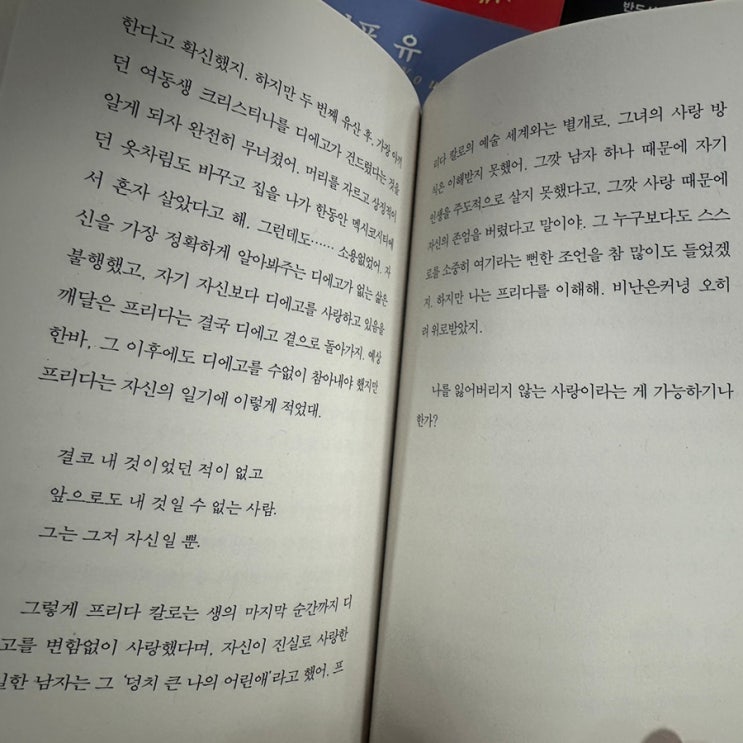 한다고 확신했지. 하지만 두 번째 유산 후, 가장 아끼
던 여동생 크리스티나를 디에고가 건드렸다는 것을
알게 되자 완전히 무너졌어. 머리를 자르고 상징적이
던 옷차림도 바꾸고 집을 나가 한동안 멕시코시티에
서 혼자 살았다고 해. 그런데도…… 소용없었어. 자
신을 가장 정확하게 알아봐주는 디에고가 없는 삶은
불행했고, 자기 자신보다 디에고를 사랑하고 있음을
깨달은 프리다는 결국 디에고 곁으로 돌아가지. 예상
한바, 그 이후에도 디에고를 수없이 참아내야 했지만
프리다는 자신의 일기에 이렇게 적었대.
결코 내 것이었던 적이 없고
앞으로도 내 것일 수 없는 사람.
그는 그저 자신일 뿐.
그렇게 프리다 칼로는 생의 마지막 순간까지 디
고를 변함없이 사랑했다며, 자신이 진실로 사랑한
일한 남자는 그 '덩치 큰 나의 어린애'라고 했어. 프
리다 칼로의 예술 세계와는 별개로, 그녀의 사랑 방
식은 이해받지 못했어. 그깟 남자 하나 때문에 자기
인생을 주도적으로 살지 못했다고, 그깟 사랑 때문에
자신의 존엄을 버렸다고 말이야. 그 누구보다도 스스
로를 소중히 여기라는 뻔한 조언을 참 많이도 들었겠
지. 하지만 나는 프리다를 이해해. 비난은커녕 오히
려 위로받았지.
나를 잃어버리지 않는 사랑이라는 게 가능하기나
한가?